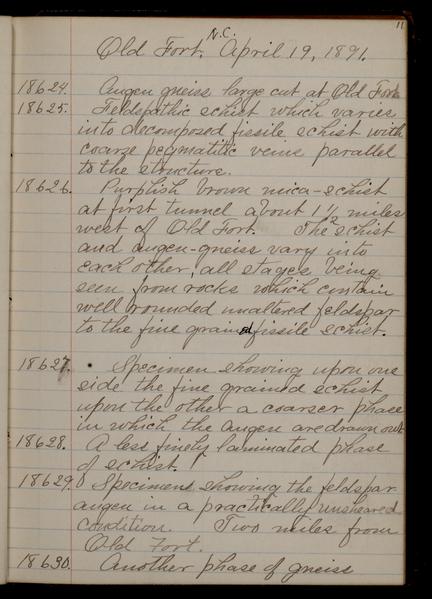 11
N.C.
Old Fort. April 19, 1891.
18624. Augen gneiss large cut at Old Fort
18625. Feldspathic schist which varies
into decomposed fissile schist with
coarse pegmatitic veins parallel
to the structure.
18626. Purplish brown mica-schist
at first tunnel about 1 1/2 miles
west of Old Fort. The schist
and augen-gneiss vary into
each other, all stages being
seen from rocks which contain
well rounded unaltered feldspar
to the fine grained fissile schist.
18627. Specimen showing upon one
side the fine grained schist
upon the other a coarser phase
in which the augen are drawn out
18628. A less finely laminated phase
of schist.
18629. Specimens showing the feldspar
augen in a practically unsheared
condition. Two miles from
Old Fort.
18630. Another phase of gneiss